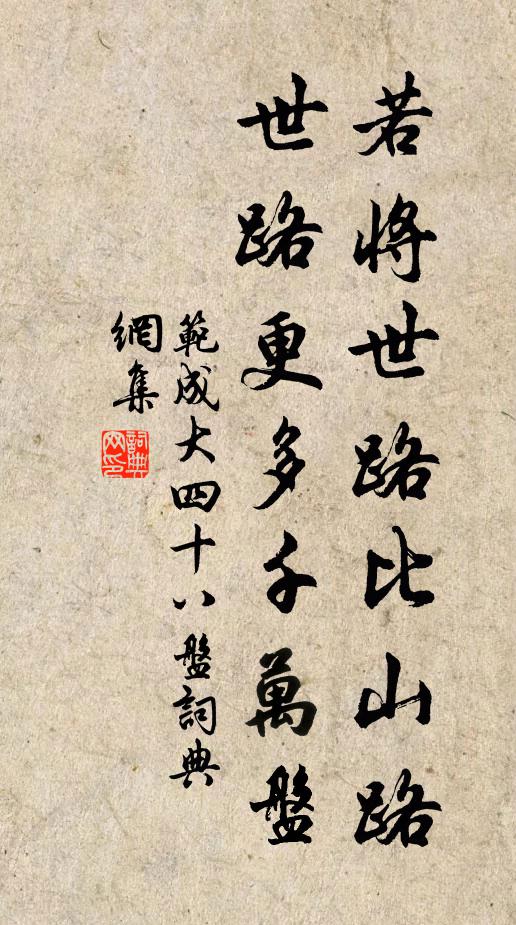 若將世路比山路
世路更多千萬盤
範成大四十八盤詞典
網集
詞典
網印